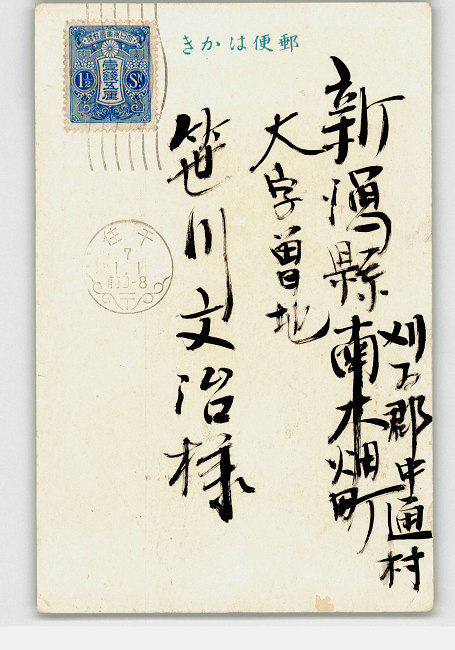 郵便はかき
新潟縣南木畑町
刈羽郡中通村
大字曽地
笹川文治様
壹銭五厘
1½ Sn
千住
7
1.1
前0-8